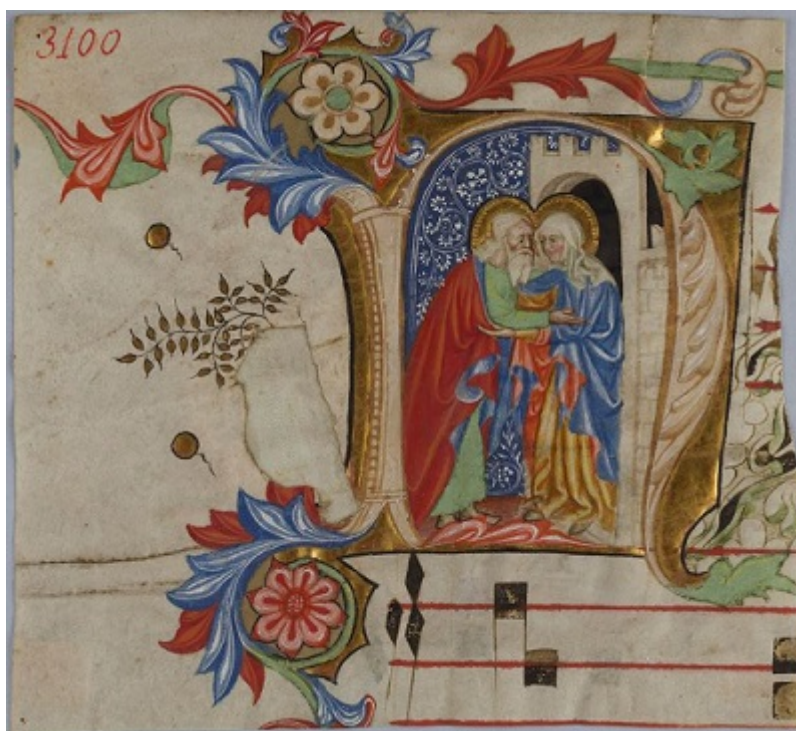 3100
N